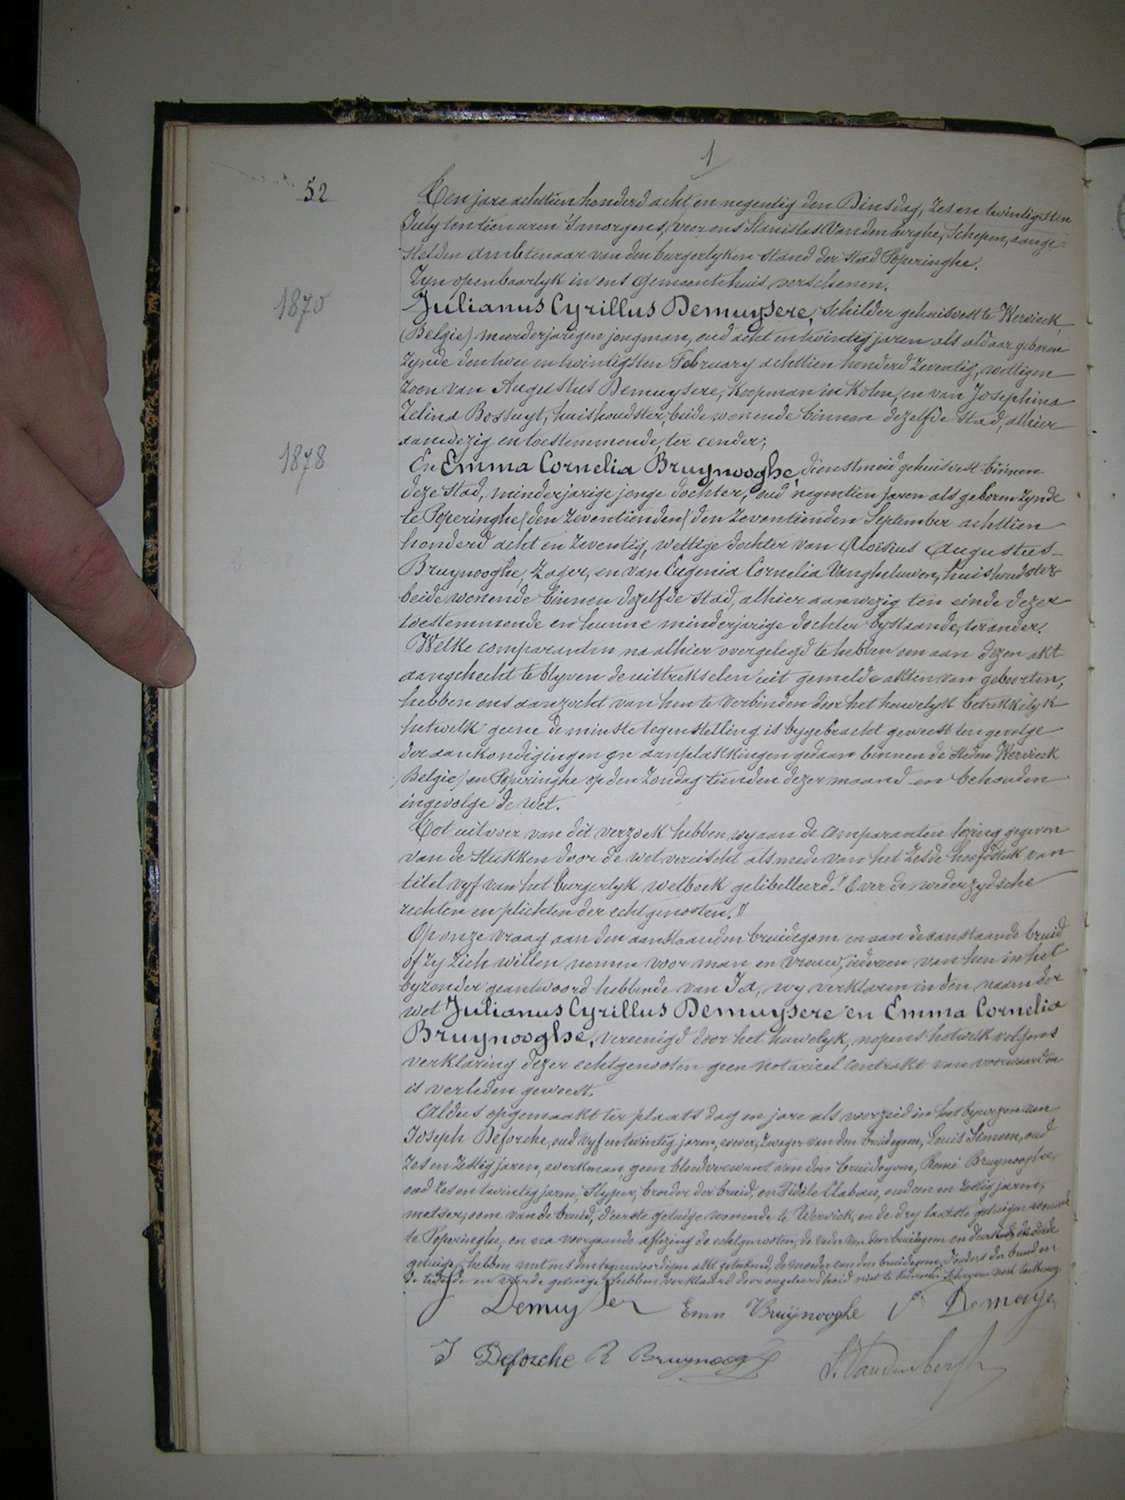 1
52
Ten jare achttien honderd acht en negentig den Dinsdag, zes en twintigsten
July ten tien uren 's morgens, voor ons Stanislas Vandenberghe, Schepen, aange-
stelden ambtenaar van den burgerlyken stand der stad Poperinghe.
Zyn openbaarlyk in ons gemeentehuis verschenen.
1870
Julianus Cyrillus Demuysere, schilder gehuisvest te Wervick
(Belgie) meerderjarigen jongman, oud acht en twintig jaren als aldaar geboren
zynde den twee en twintigsten February achttien honderd zeventig, wettigen
zoon van Augustus Demuysere, koopman in kolen, en van Josephina
Zelina Bossuyt, huishoudster, beide wonende binnen dezelfde stad, alhier
aanwezig en toestemmende, ter eender;
1878
En Emma Cornelia Bruynooghe, dienstmeid gehuisvest binnen
deze stad, minderjarige jonge dochter, oud negentien jaren als geboren zynde
te Poperinghe (den zeventienden) den zeventienden September achttien
honderd acht en zeventig, wettige dochter van Aloïsius Augustus
Bruynooghe, zager, en van Eugenia Cornelia Vangheluwen, huishoudster
beide wonende binnen dezelfde stad, alhier aanwezig ten einde dezer
toestemmende en hunne minderjarige dochter bystaande, ter ander.
Welke comparanten na alhier overgelegd te hebben om aan dezen akt
aangehecht te blyven de uittrekselen uit gemelde akten van geboorten,
hebben ons aanzocht van hen te verbinden door het houwelyk betrekkelyk
hetwelk geene de minste tegenstelling is bygebracht geweest ten gevolge
der aankondigingen en aanplakkingen gedaan binnen de steden Wervick
(Belgie) en Poperinghe op den zondag tienden dezer maand en behouden
ingevolge de wet.
Tot uitvoer van dit verzoek hebben wy aan de comparanten lezing gegeven
van de stukken door de wet vereischt alsmede van het zesde hoofdstuk van
titel vyf van het burgerlyk wetboek gelibelleerd: "Over de wederzydsche
rechten en plichten der echtgenooten."
Op onze vraag aan den aanstaanden bruidegom en aan de aanstaande bruid
of zy zich willen nemen voor man en vrouw, iedereen van hen in het
byzonder geantwoord hebbende van Ja, wy verklaren in den naam der
wet Julianus Cyrillus Demuysere en Emma Cornelia
Bruynooghe, vereenigd door het huwelyk, nopens hetwelk volgens
verklaring dezer echtgenooten geen notarieel contrakt van voorwaarden
is verleden geweest.
Aldus opgemaakt ter plaats dag en jare als voorzeid in het bywezen van
Joseph Deforche, oud vyf en twintig jaren, wever, zwager van den bruidegom, Louis Simoen, oud
zes en zestig jaren, werkman geen bloedverwant van den bruidegom, Remi Bruynooghe,
oud zes en twintig jaren, slyper, broeder der bruid, en Fidèle Clabau, oud een en zestig jaren,
metser, oom van de bruid, d'eerste getuige wonende te Wervick, en de dry laatste getuigen wonende
te Poperinghe, en na voorgaande aflezing de echtgenooten, de vader van den bruidegom en d'eerste en derde
getuige hebben met ons den tegenwoordigen akt geteekend, de moeder van den bruidegom, d'ouders der bruid en
de tweede en vierde getuige hebben verklaard door ongeleerdheid niet te kunnen schryven noch teekenen.
J Demuyser Ema Bruÿnooghe Demuyse
J Deforche R Bruynoogh S. Vandenbergh